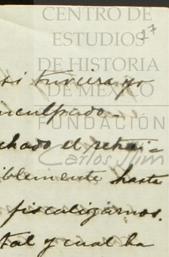 CENTRO DE
ESTUDIOS
27
DE HISTORIA
DE MÉXICO
si tuviera yo
inculpado.
FUNDACIÓN
chado el reha-
Carlos Slim
iblemente hasta
fiscaligarnos.
tal y cual ha